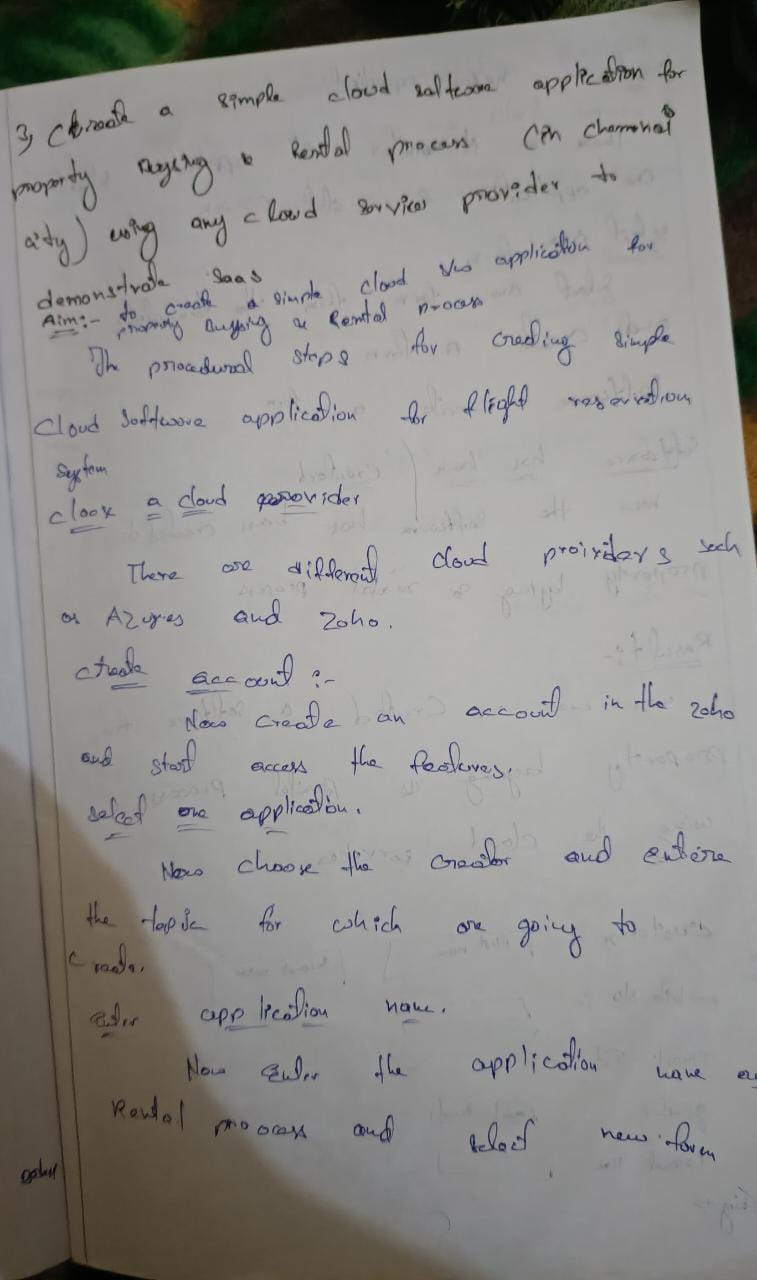 3, Create a simple cloud software application for
property buying & Rental process (in chennai
city) using any cloud services provider to
demonstrate saas
Aim:- to create a simple cloud application for
property buying & Rental process
The procedural steps for creating simple
Cloud Software application for flight reservation
System
cloox a cloud provider
There are different cloud proividers such
as Azures and Zoho.
create account :-
Now create an account in the zoho
and start access the features.
select one application.
Now choose the creator and entere
the topic for which are going to
create.
Enter application name.
Now Enter the application name
Rental process and select new form